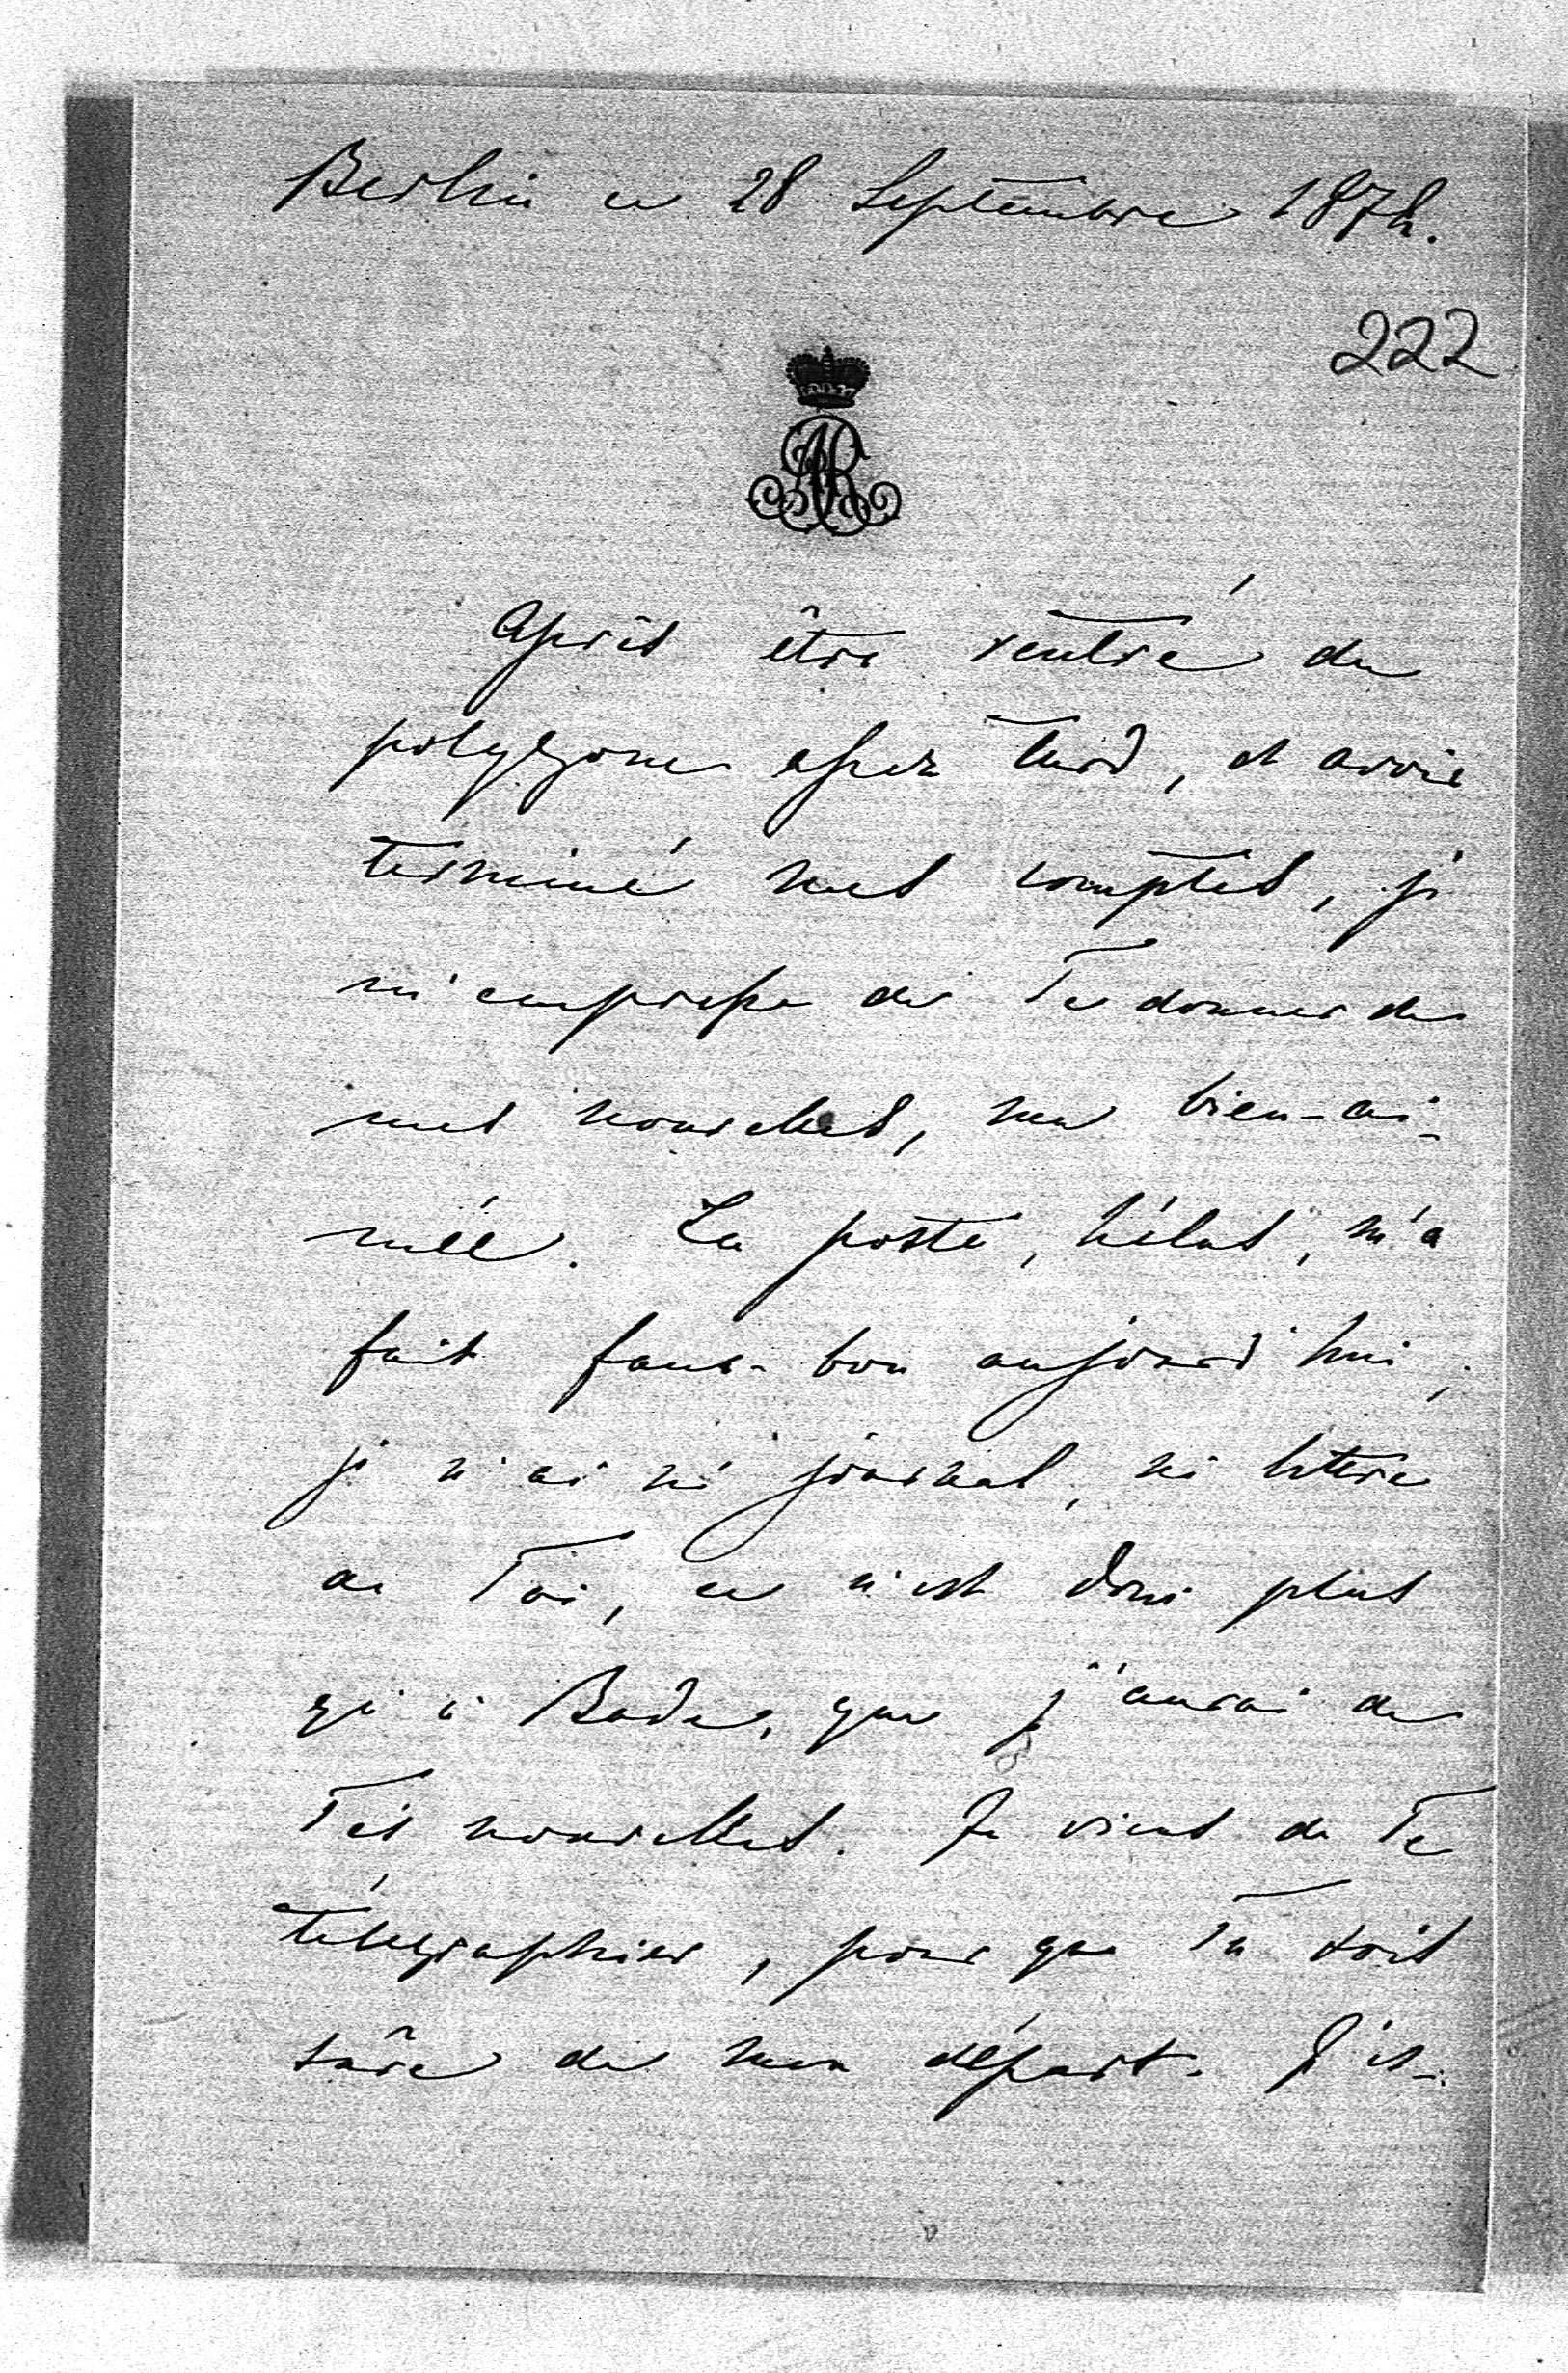 Berlin ce 28 Septembre 1878.
222
AR
Après être rentré du
polygone assez tard, et avoir
terminé mes comptes, je
m'empresse de Te donner de
mes nouvelles, ma bien-ai-
mée. La poste, hélas, m'a
fait faux-bon aujourd'hui,
je n'ai ni journal, ni lettre
de Toi, ce n'est donc plus
qu'à Bade, que j'aurai de
Tes nouvelles. Je viens de Te
télégraphier, pour que Tu sois
sûre de mon départ. J'es-